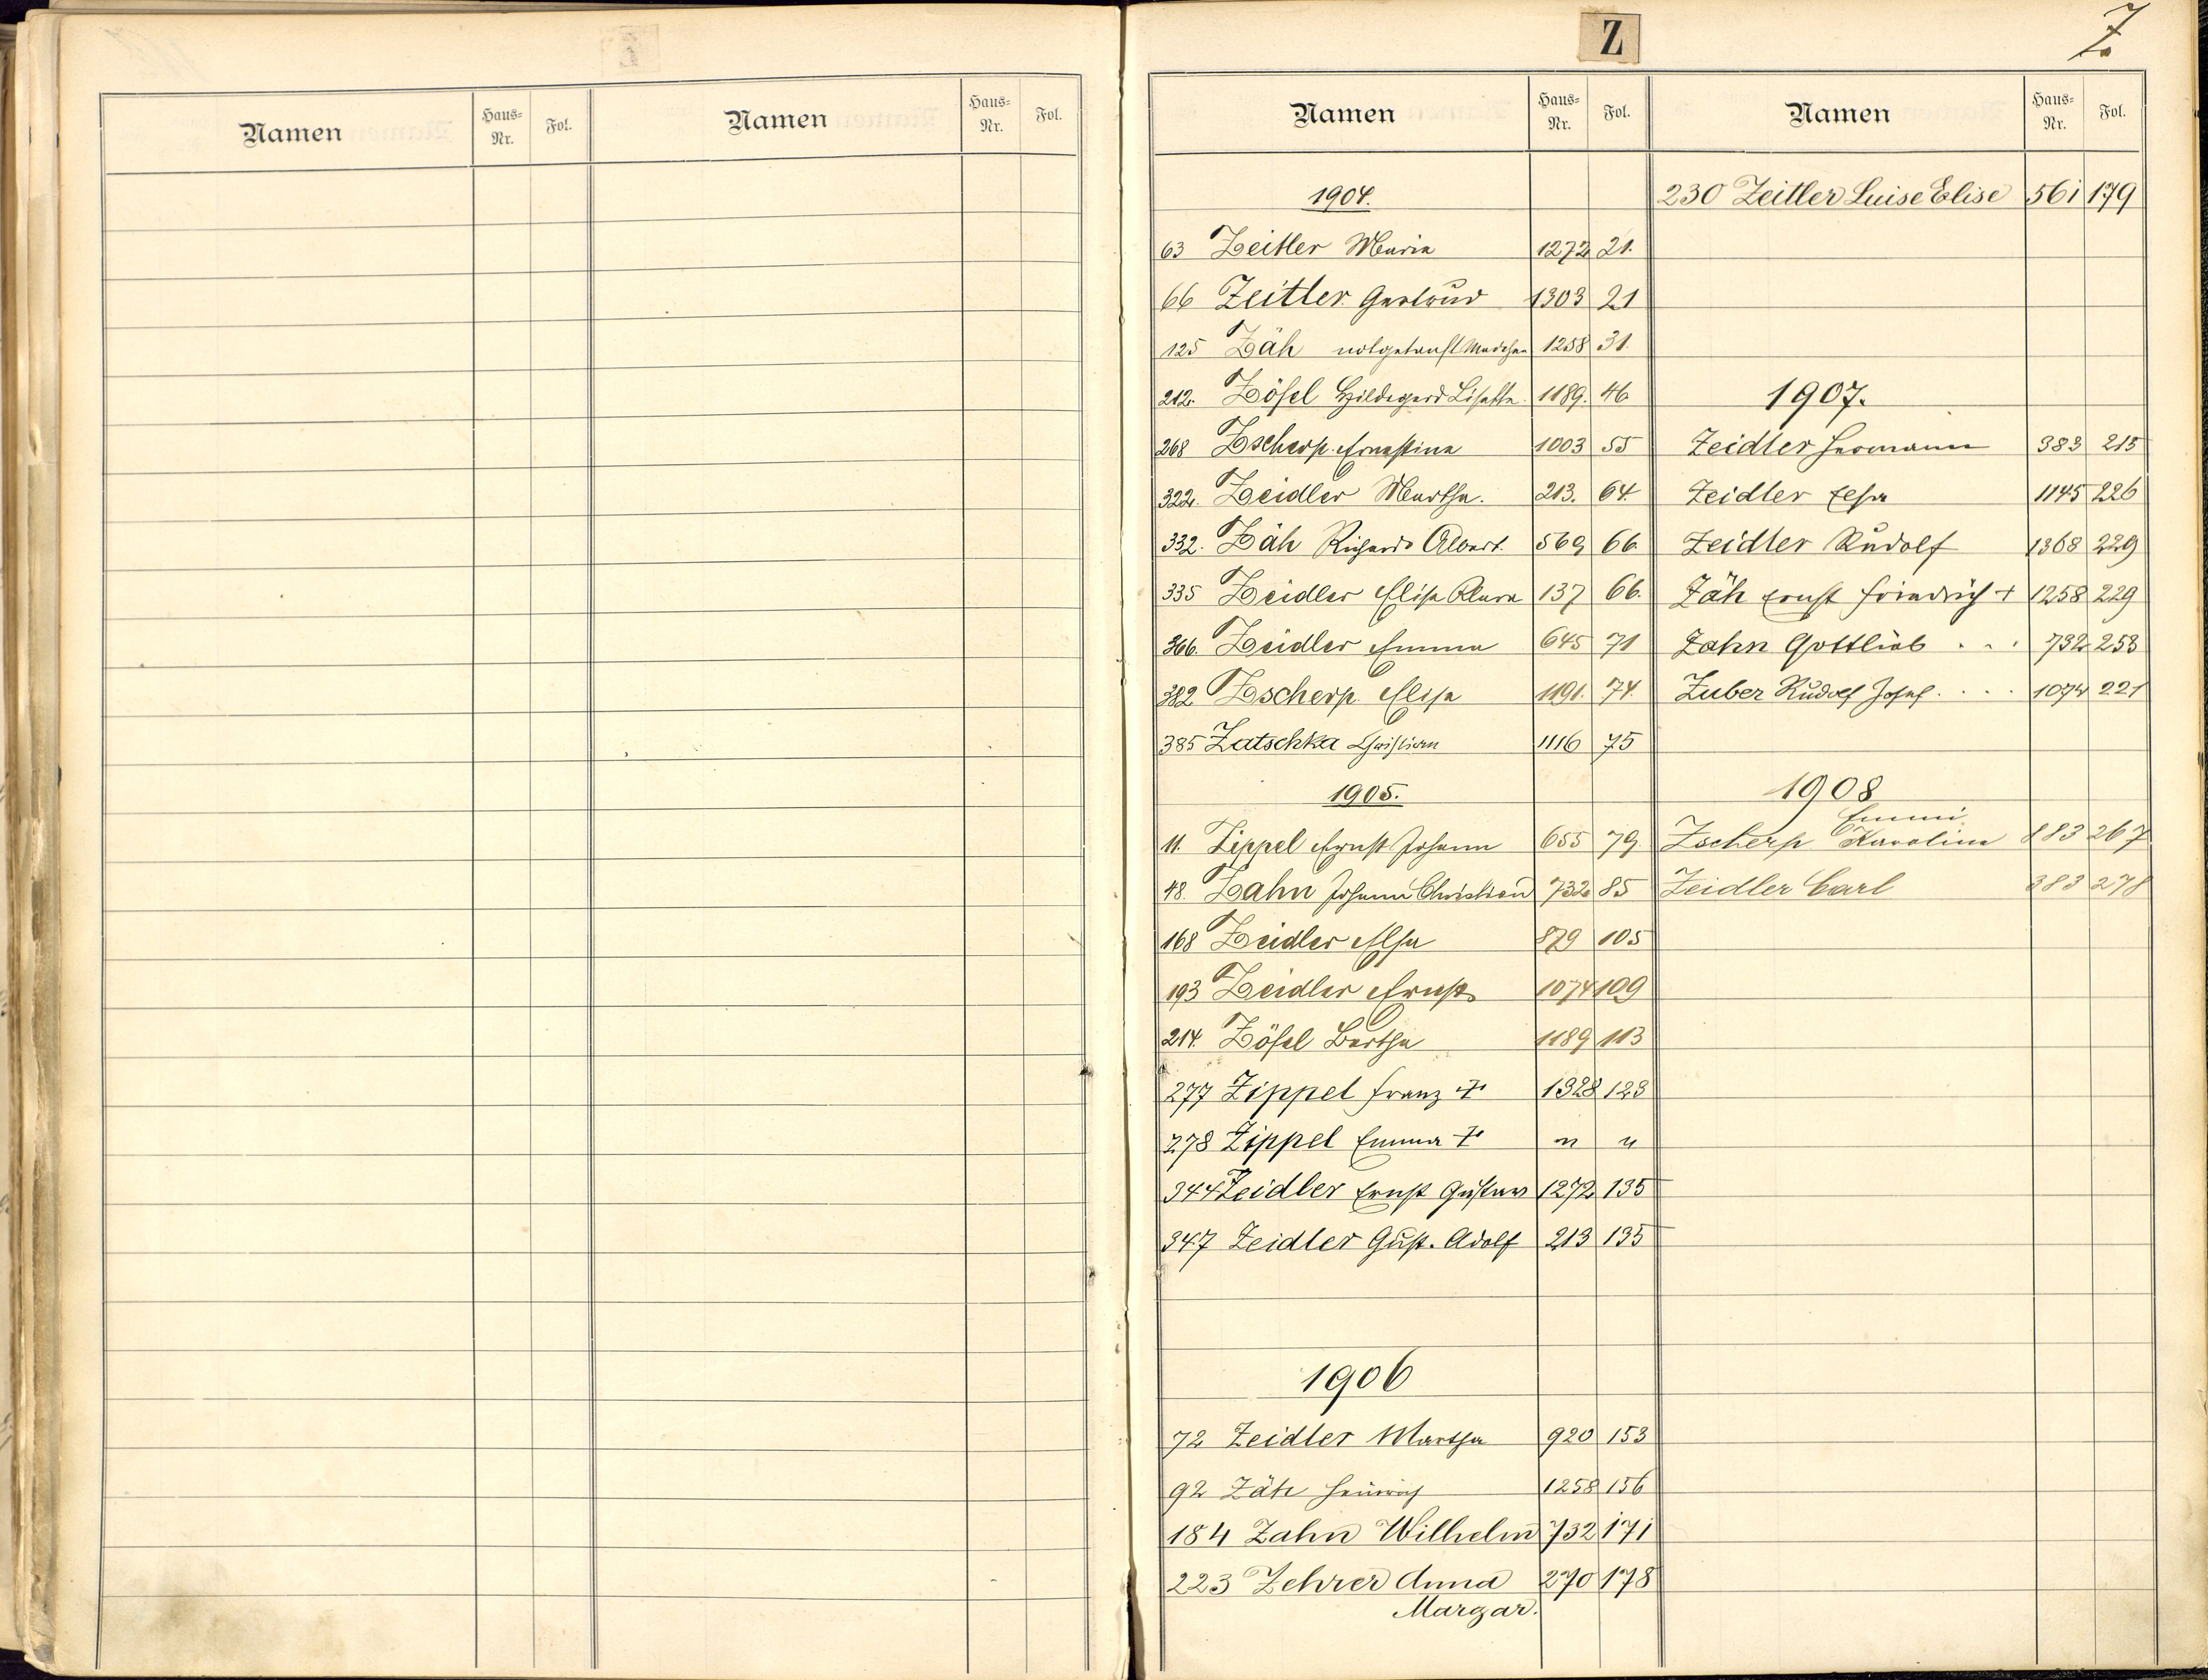 Namen Haus-Nr. Fol. Namen Haus-Nr. Fol.
Z
Z
Namen Haus-Nr. Fol. Namen Haus-Nr. Fol.
1904.
63 Zeitler Maria 1272 21.
66 Zeitler Gertrud 1303 21
125 Zäh notgetauft Mädchen 1258 31.
212. Zösel Hildegard Lisette 1189. 46
268 Zscherp Ernestine 1003 55
322. Zeidler Martha. 213. 64.
332. Zäh Richard Albert. 569 66.
335 Zeidler Elise Klara 137 66.
366. Zeidler Emma 645 71
382 Zscherp Elise 1191. 74.
385 Zatschka Christian 1116 75
1905.
11. Zippel Ernst Johann 655 79.
48. Zahn Johann Christian 732 85
168 Zeidler Elsa 879 105
193 Zeidler Ernst 1074 109
214. Zösel Bertha 1189 113
277 Zippel Franz + 1328 123
278 Zippel Emma + " "
344 Zeidler Ernst Gustav 1272 135
347 Zeidler Gust. Adolf 213 135
1906
72 Zeidler Martha 920 153
92 Zäh Heinrich 1258 156
184 Zahn Wilhelm 732 171
223 Zehrer Anna 270 178
Margar.
230 Zeitler Luise Elise 561 179
1907.
Zeidler Hermann 383 215
Zeidler Elsa 1145 226
Zeidler Rudolf 1368 229
Zäh Ernst Friedrich + 1258 229
Zahn Gottlieb . . . 732 253
Zuber Rudolf Josef . . . . 1074 221
1908
Emmi
Zscherp Karolina 883 267
Zeidler Carl 383 278